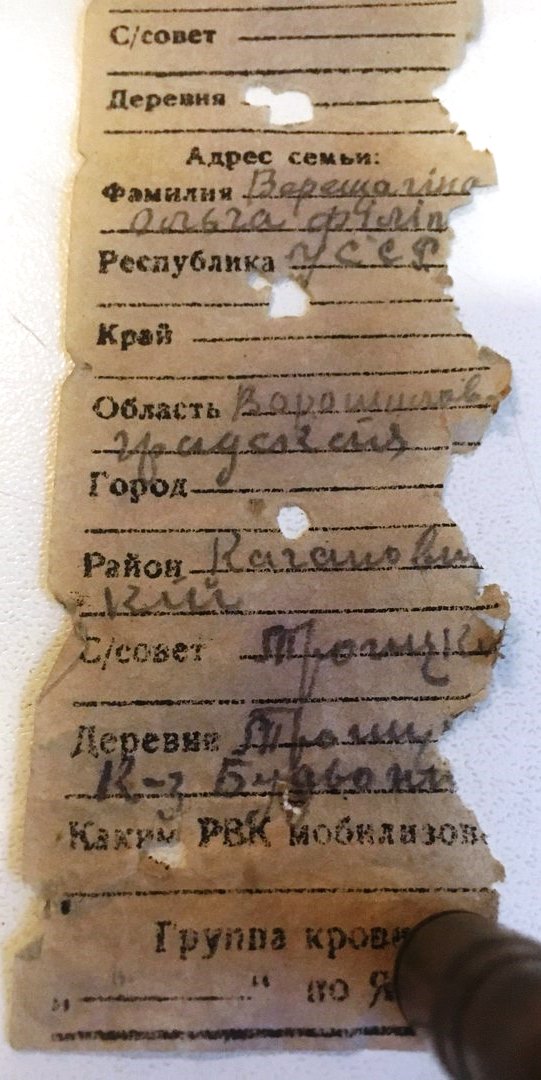 С/совет
Деревня
Адрес семьи:
Фамилия Верещагіна
Ольга Філіп
Республика УССР
Край
Область Ворошилов
градская
Город
Район Каганович
кий
С/совет Троицки
Деревня Троиц
К-з Будьони
Каким РВК мобилизов
Группа крови
„ “ по Я